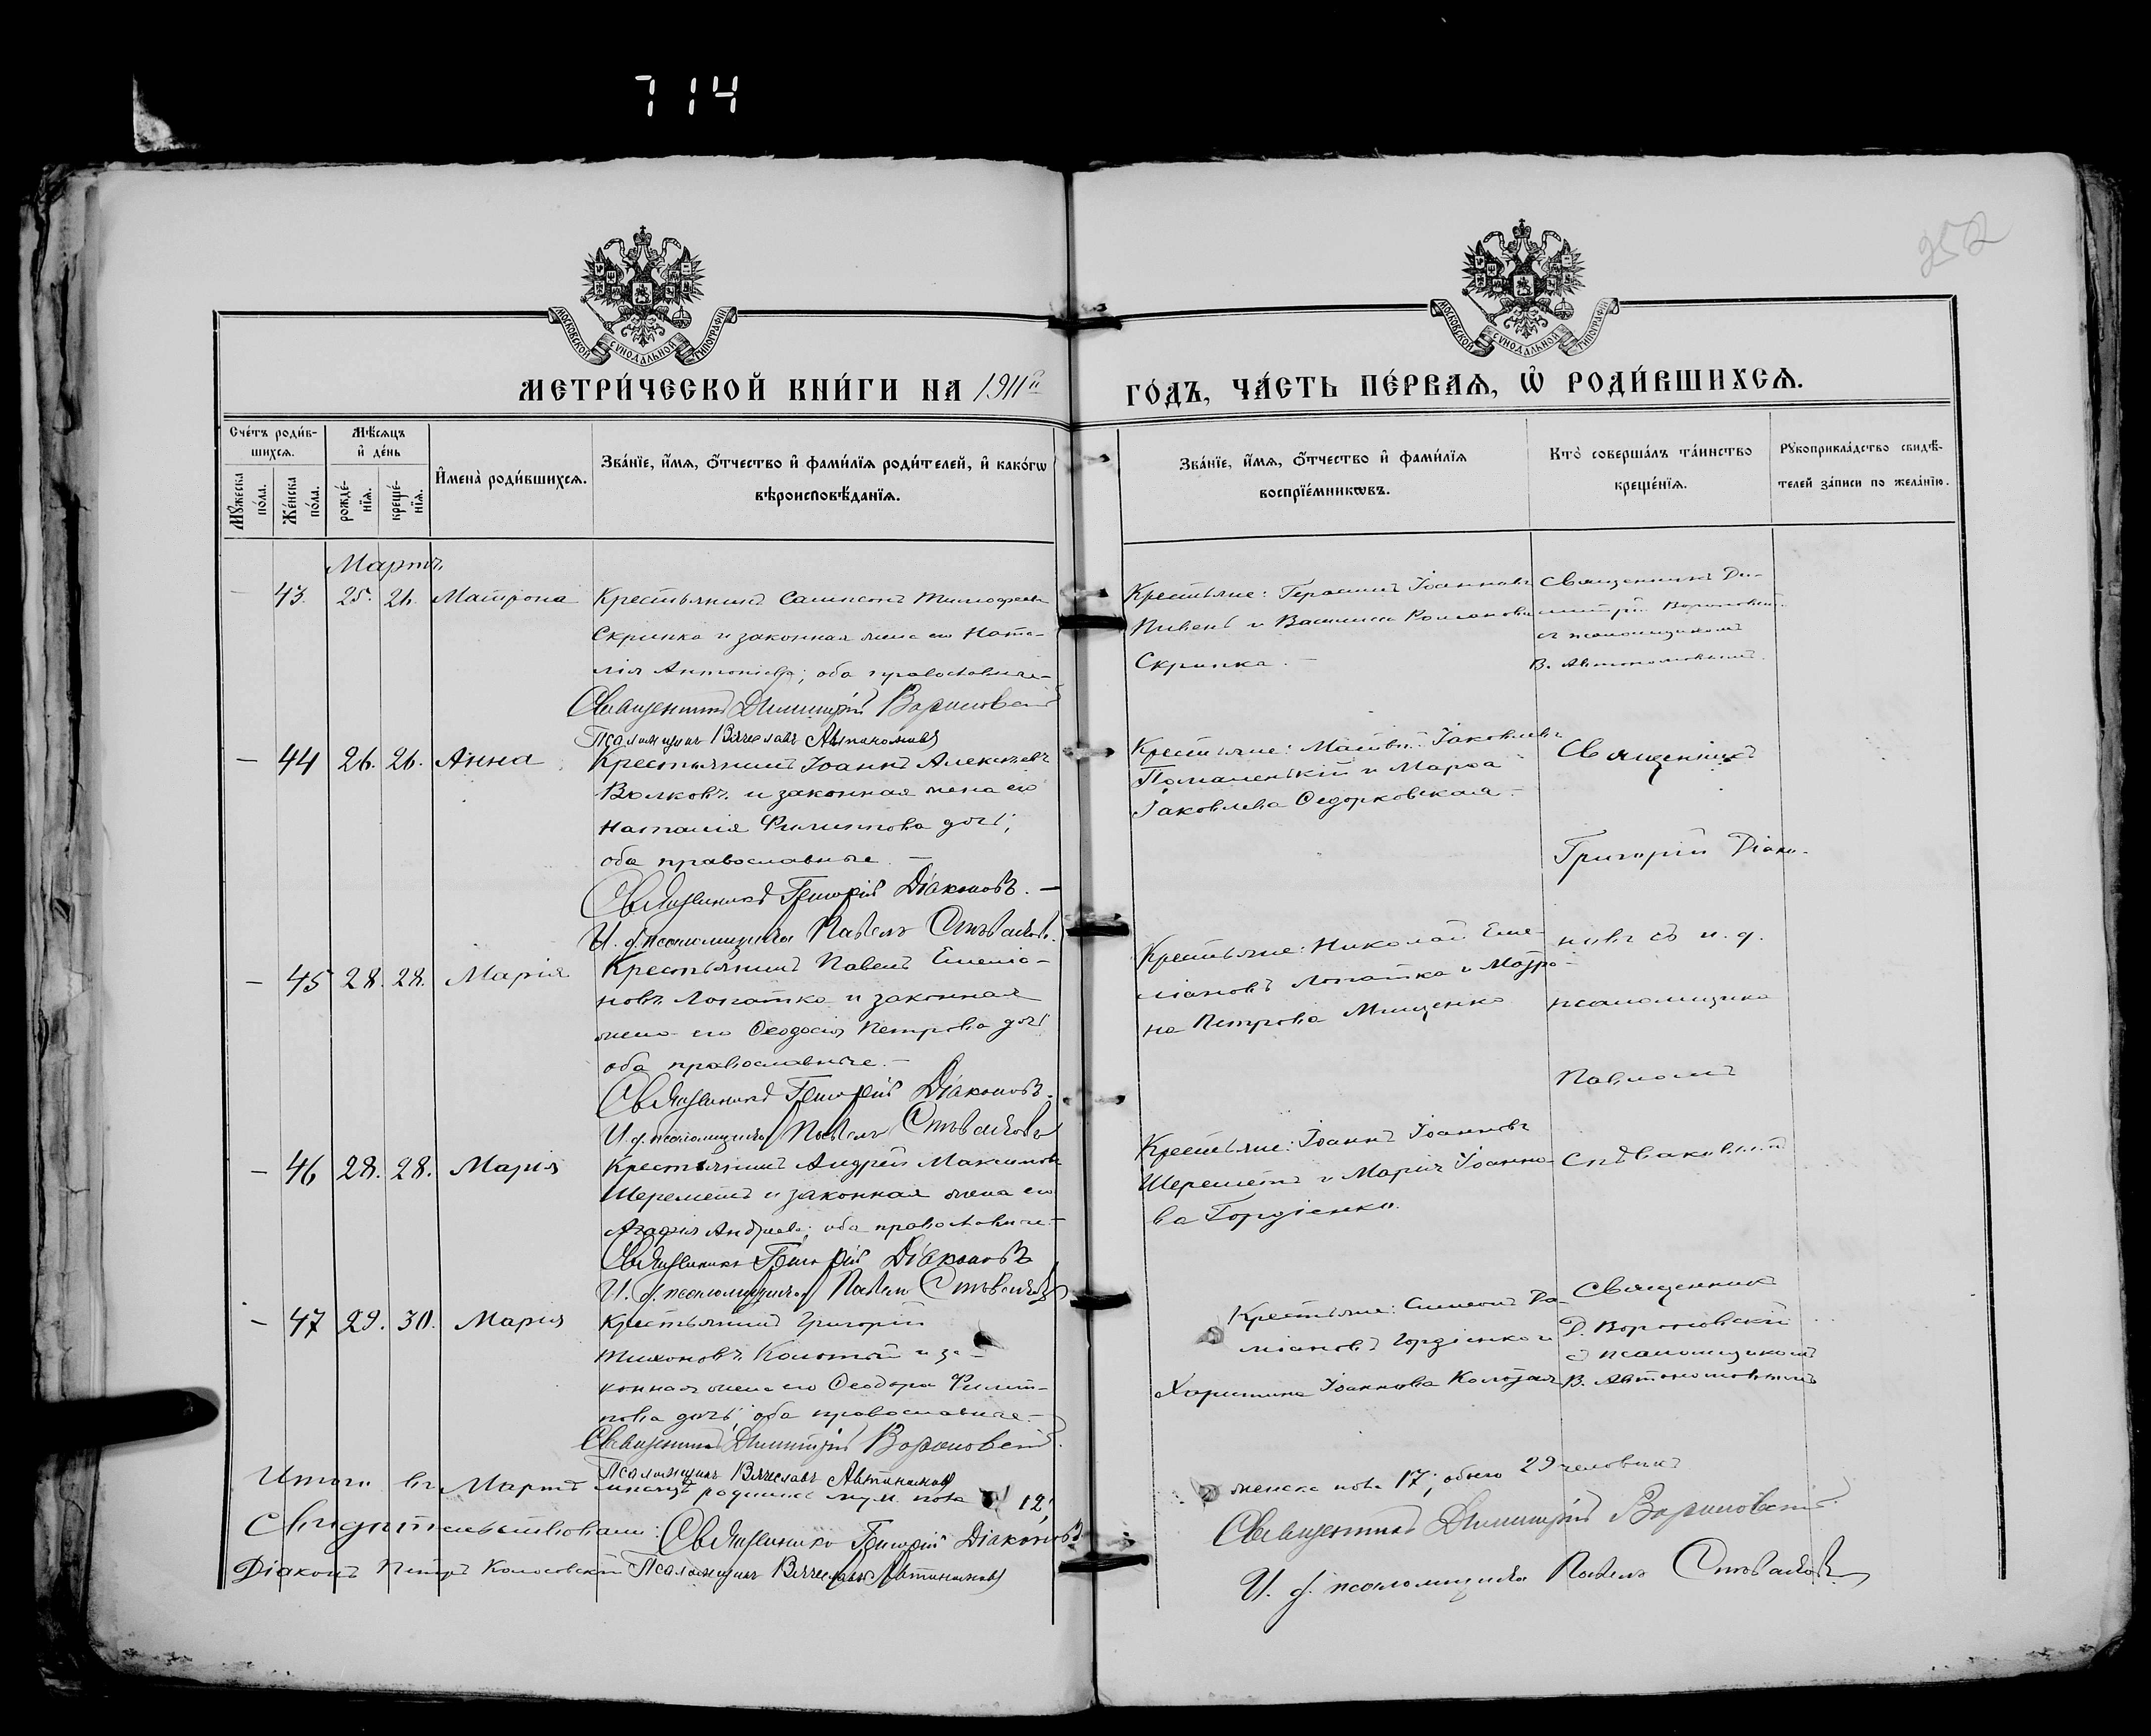 714
252
МОСКОВСКОЙ СѴНОДАЛЬНОЙ ТИПОГРАФІИ
МОСКОВСКОЙ СѴНОДАЛЬНОЙ ТИПОГРАФІИ
МЕТРИ́ЧЕСКОЙ КНИ́ГИ НА 1911й
ГО́ДЪ, ЧА́СТЬ ПЕ́РВАѦ, Ѡ҆ РОДИ́ВШИХСѦ.
Сче́тъ роди́в-
шихсѧ.
Мꙋ́жеска
по́ла.
Же́нска
по́ла.
Мѣ́сѧцъ
и҆ де́нь
рожде́-
нїѧ.
креще́-
нїѧ.
И҆мена̀ роди́вшихсѧ.
Зва́нїе, и҆́мѧ, ѻ҆́тчество и҆ фами́лїѧ роди́телей, и҆ како́гѡ
вѣроисповѣ́данїѧ.
Зва́нїе, и҆́мѧ, ѻ҆́тчество и҆ фами́лїѧ
воспрїе́мникѡвъ.
Кто̀ соверша́лъ та́инство
креще́нїѧ.
Рꙋкоприкла́дство свидѣ́-
телей за́писи по жела́нїю.
Мартъ
43. 25. 26. Матрона
Крестьянинъ Сампсонъ Тимоѳеевъ
Скрипка и законная жена его Ната-
лія Антоніева; оба православные
Священникъ Димитрій Вороновскій
Псаломщикъ Вячеславъ Автономовъ
Крестьяне: Герасимъ Іоанновъ
Пивень и Василиса Романова
Скрипка. –
Священникъ Ди-
митрій Вороновскій
съ псаломщикомъ
В. Автономовымъ.
– 44 26. 26. Анна
Крестьянинъ Іоаннъ Алексѣевъ
Волковъ и законная жена его
Наталія Филиппова дочь;
оба православные. –
Священникъ Григорій Діаконовъ. –
И. д. псаломщика Павелъ Спѣваковъ.
Крестьяне: Матвѣй Іаковлевъ
и Марѳа
Іаковлева Сидорковская. –
Священникъ
Григорій Діако-
новъ съ и. д.
псаломщика
Павломъ
Спѣваковымъ
– 45 28. 28. Марія
Крестьянинъ Павелъ Емеліа-
новъ Лопатка и законная
жена его Ѳеодосія Петрова дочь
оба православные. –
Священникъ Григорій Діаконовъ.
И. д. псаломщика Павелъ Спѣваковъ
Крестьяне: Николай Еме-
ліановъ Лопатка и Матро-
на Петрова Мищенко
– 46 28. 28. Марія
Крестьянинъ Андрей Максимовъ
Шереметъ и законная жена его
Агафія Андреева; оба православные –
Священникъ Григорій Діаконовъ
И. д. псаломщика Павелъ Спѣваковъ
Крестьяне: Іоаннъ Іоанновъ
Шереметъ и Марія Іоанно-
ва Гордіенко.
– 47 29. 30. Марія
Крестьянинъ Григорій
Тихоновъ и за-
конная жена его Ѳеодора Филип-
пова дочь; оба православные –
Священникъ Димитрій Вороновскій.
Псаломщикъ Вячеславъ Автономовъ
Крестьяне: Симеонъ Да-
міановъ Гордіенко и
Харитина Іоаннова
Священникъ
Д. Вороновскій
съ псаломщикомъ
В. Автономовымъ
Итого въ Мартѣ мѣсяцѣ родилось муж. пола 12,
женска пола 17; обоего 29 человѣкъ
Свидѣтельствовали: Священникъ Григорій Діаконовъ
Священникъ Димитрій Вороновскій.
Діаконъ Петръ Колосовскій Псаломщикъ Вячеславъ Автономовъ
И. д. псаломщика Павелъ Спѣваковъ